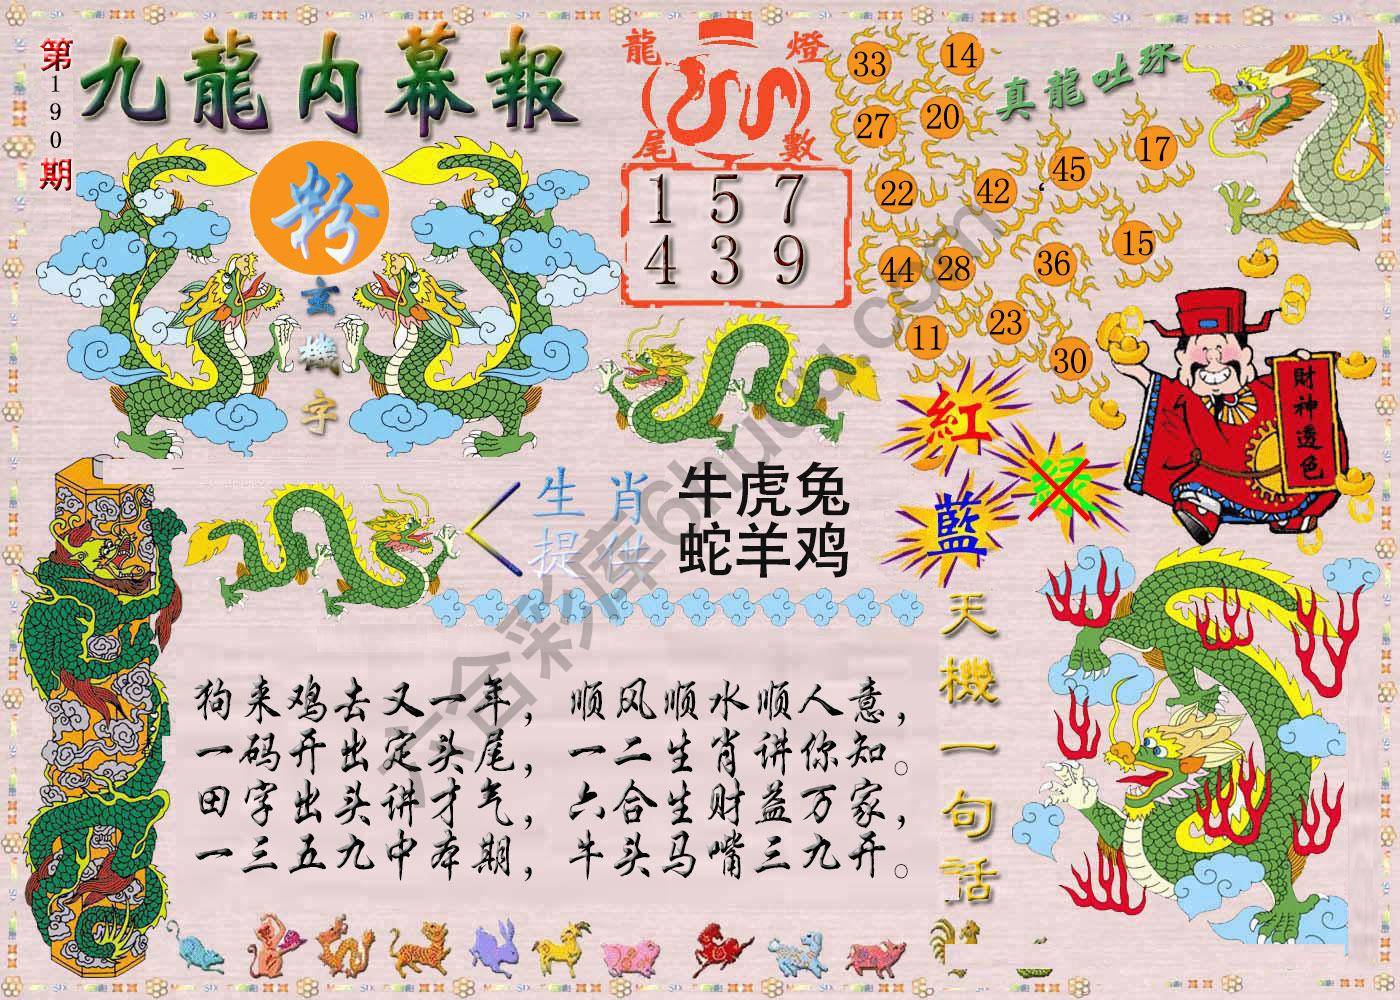 第190期
九龍内幕報
粉
玄機字
龍燈尾數
1 5 7
4 3 9
真龍吐珠
33 14
27 20
45 17
22 42
15
44 28 36
11 23
30
財神透色
紅
綠
藍
生肖
提供
牛虎兔
蛇羊鸡
天機一句话
狗来鸡去又一年，顺风顺水顺人意，
一码开出定头尾，一二生肖讲你知。
田字出头讲才气，六合生财益万家，
一三五九中本期，牛头马嘴三九开。
六合彩库6huuu.com